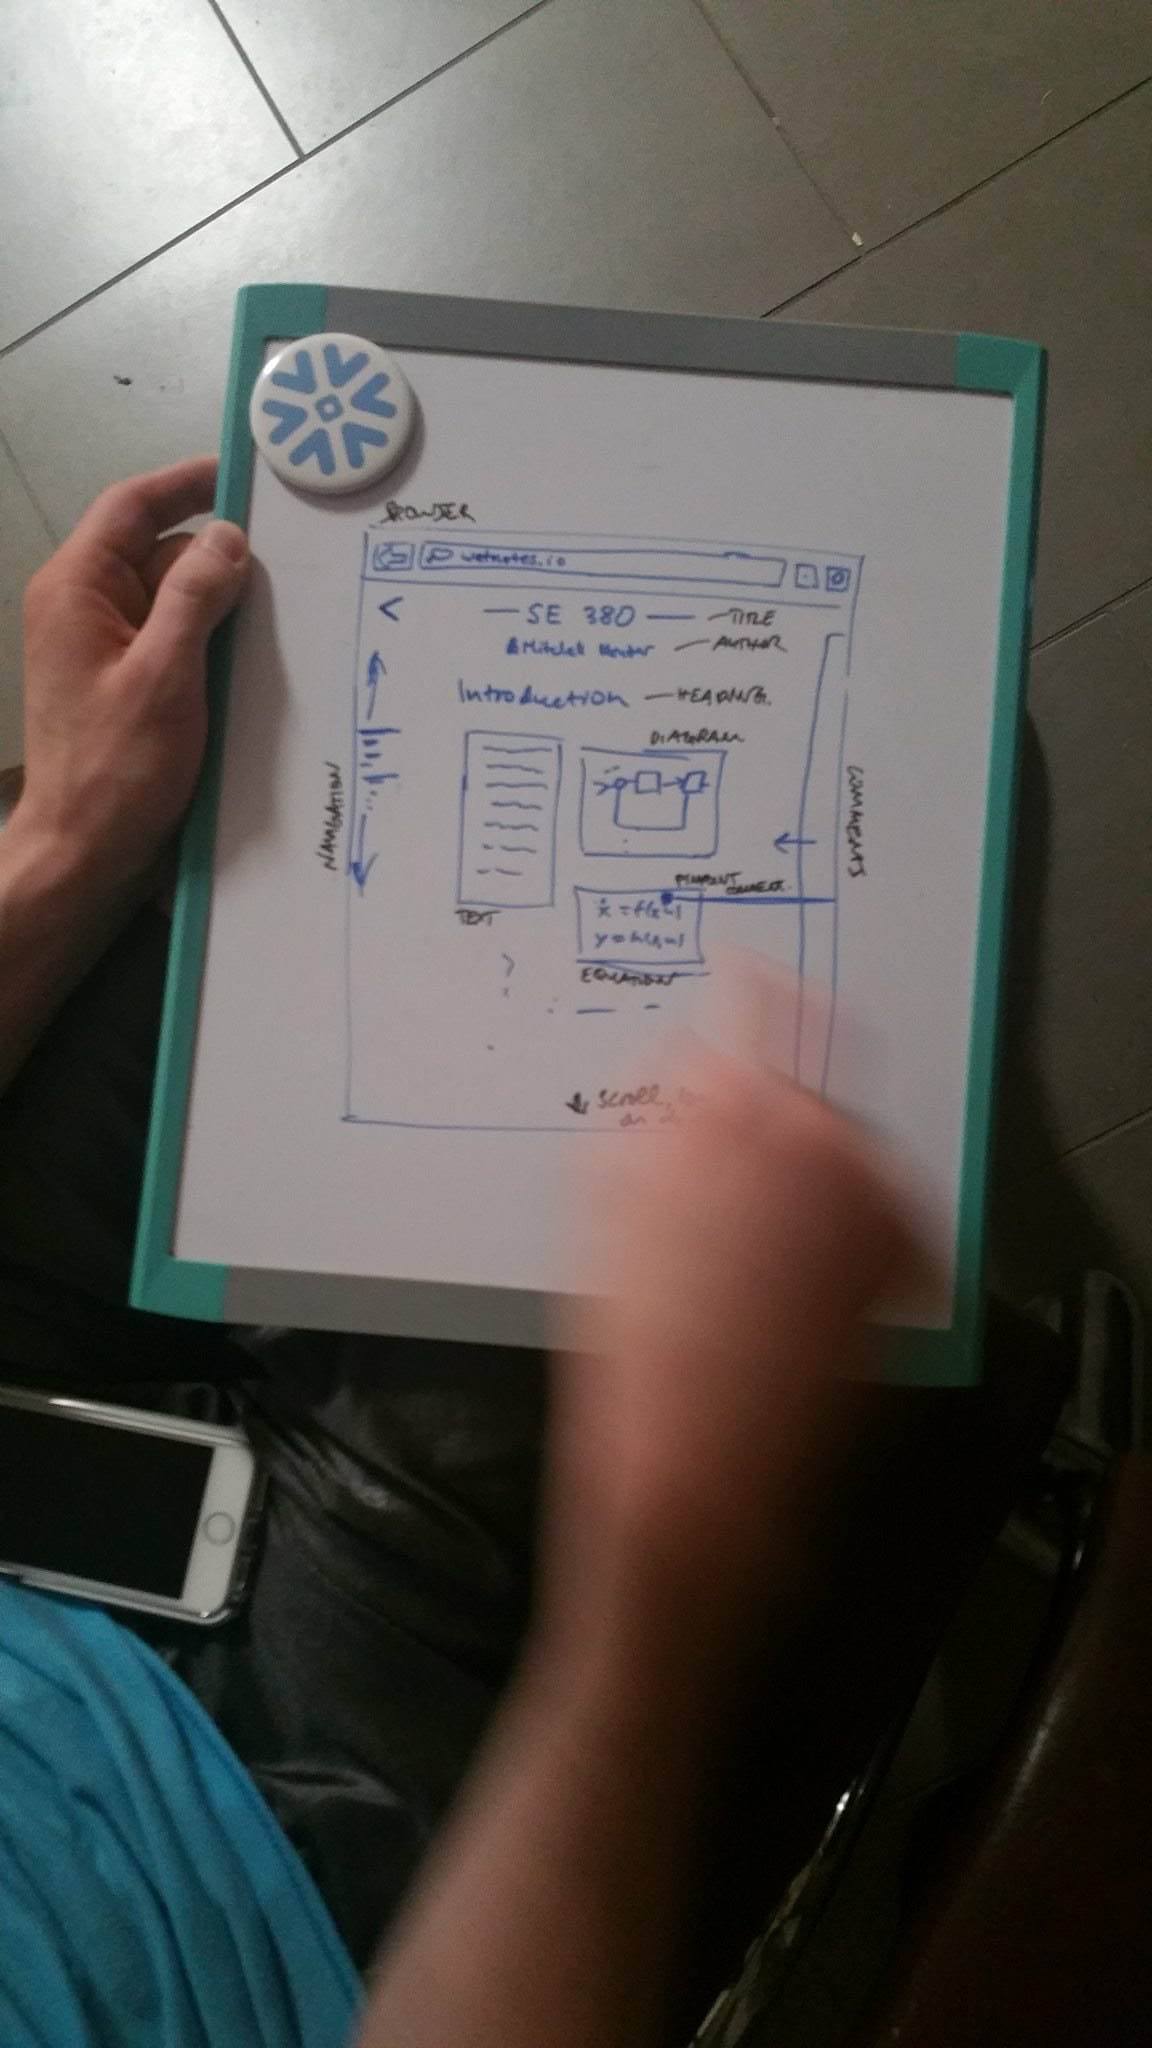 BROWSER
wetnotes.io
<
— SE 380 — — TITLE
Mitchell — AUTHOR
Introduction — HEADING.
DIAGRAM
NAVIGATION
COMMENTS
PINPOINT
COMMENT.
TEXT
EQUATION
↓ Scroll,